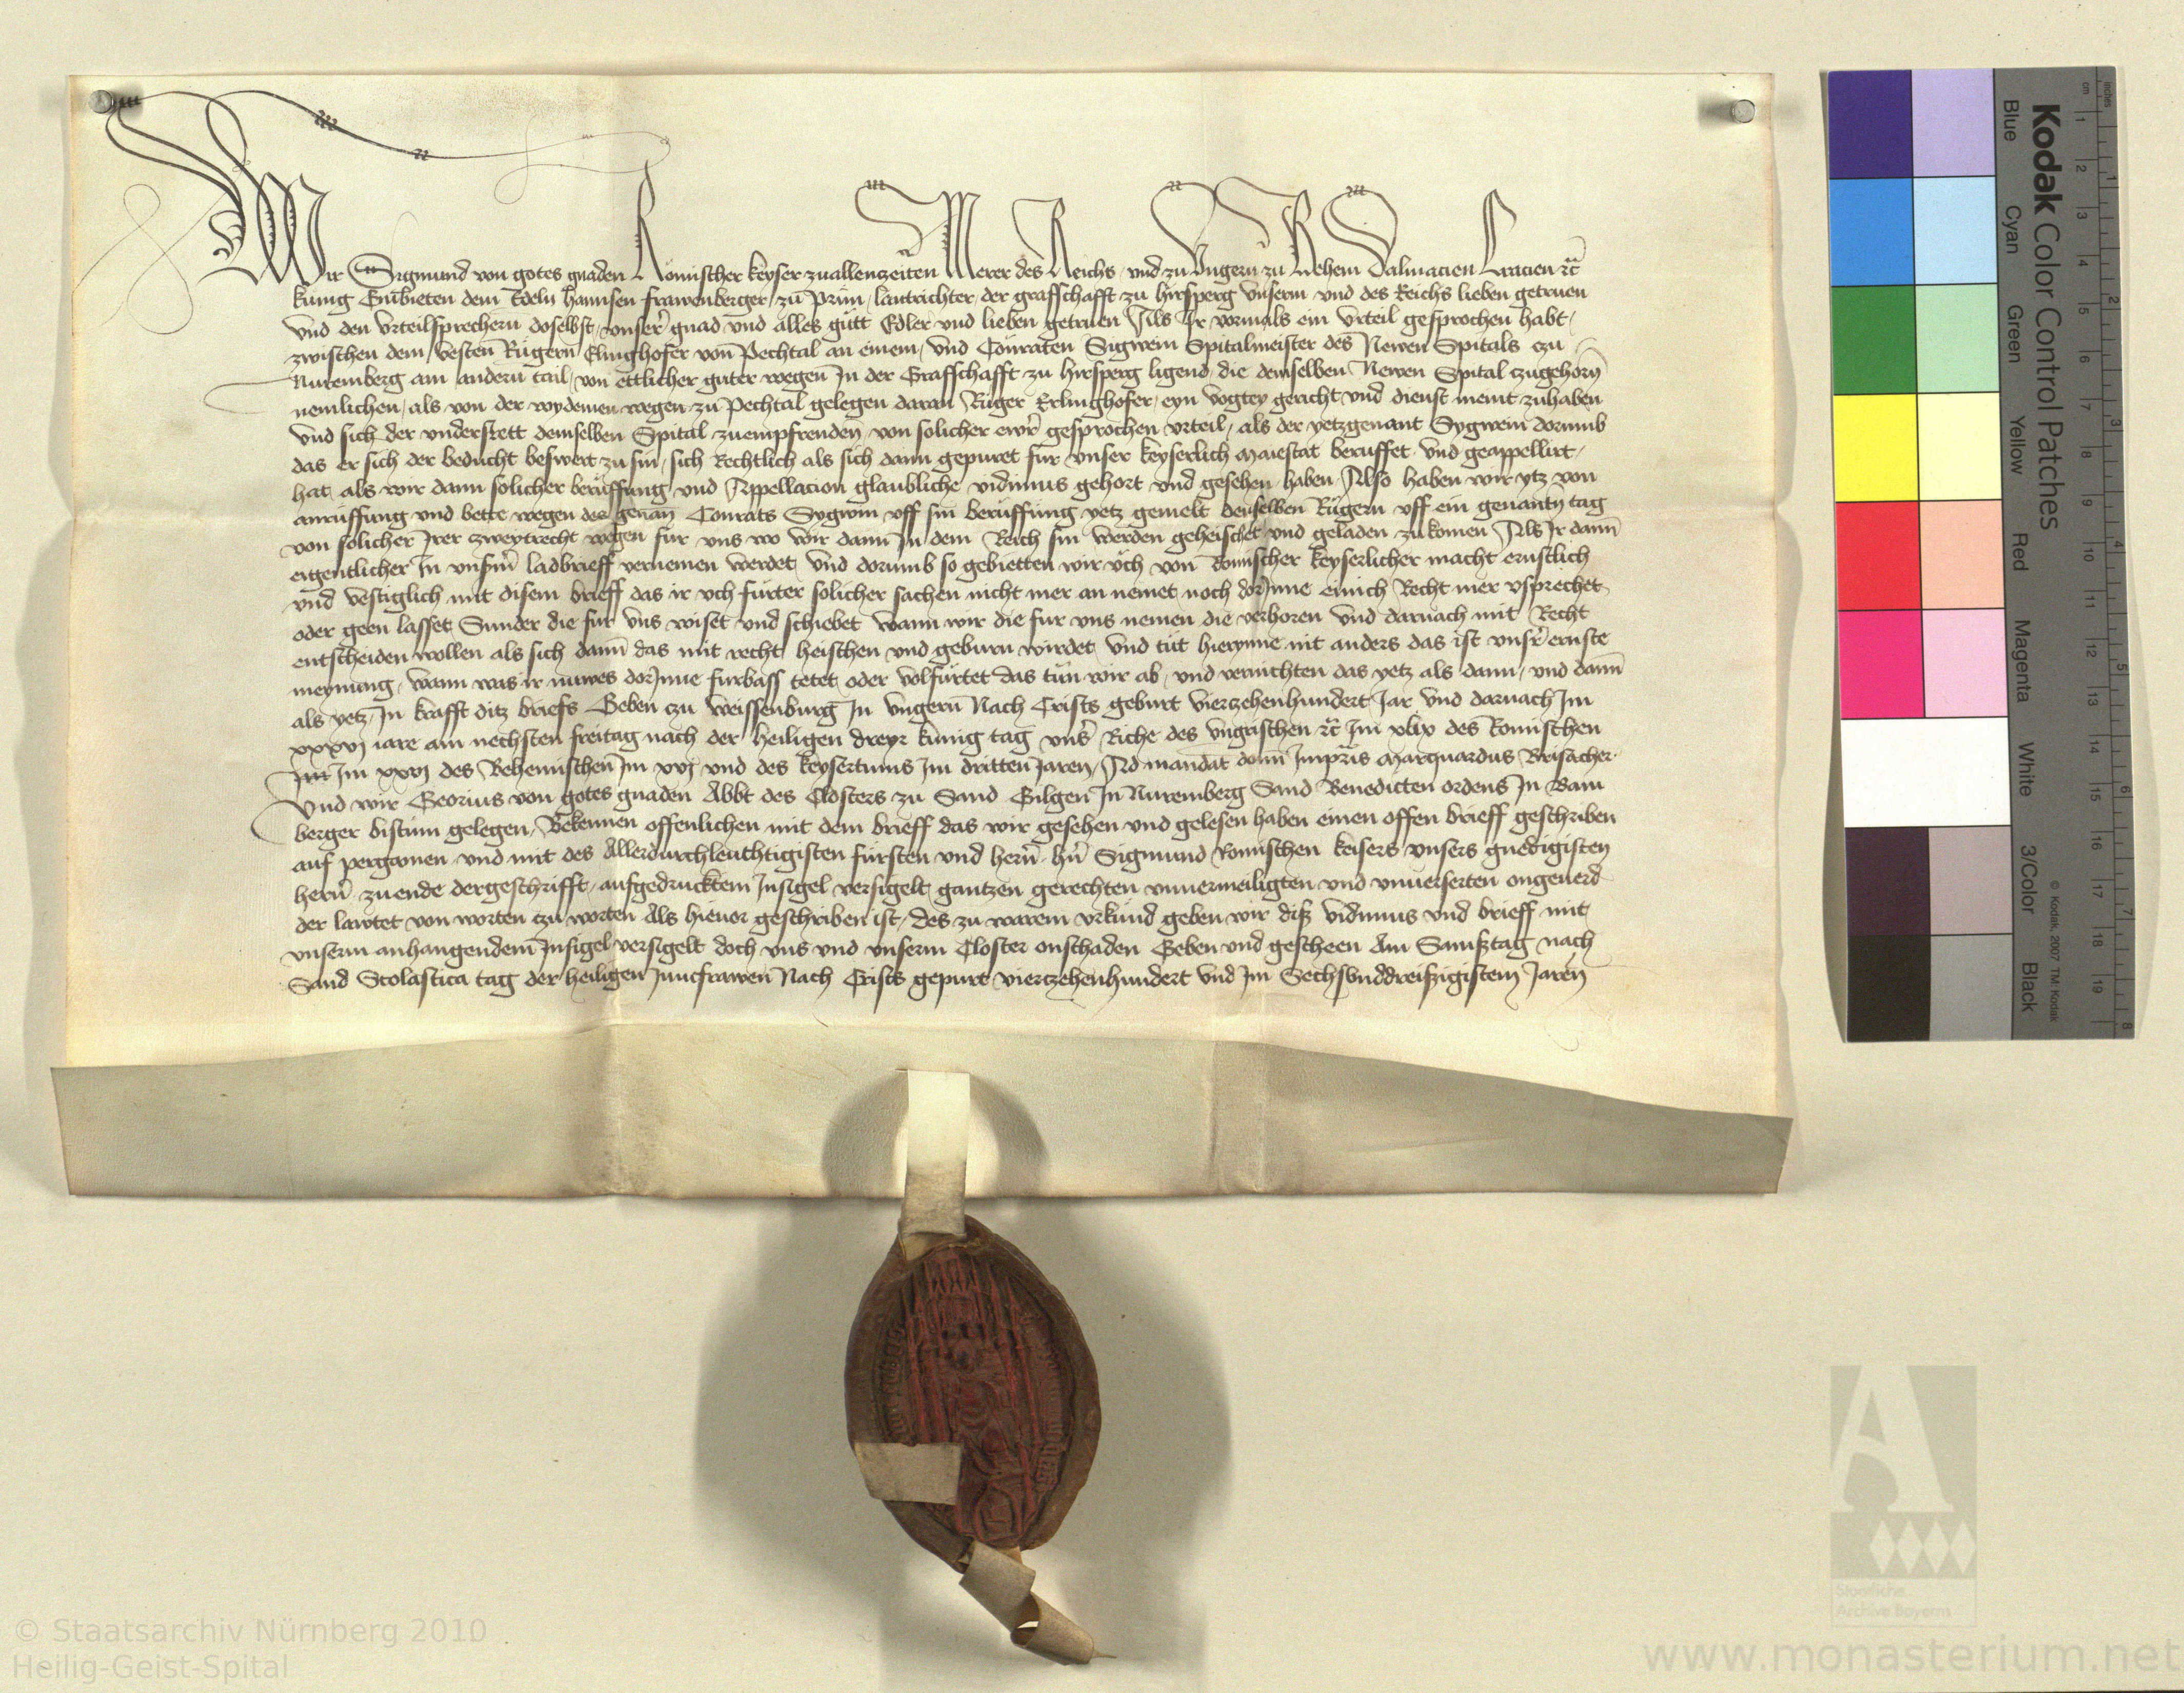 Wir Sigmund von gotes gnaden Römischer keyser zuallenczeiten Merer des Reichs und zu Ungern zu Behem Dalmacien Croacien etc
kunig Enbieten dem Edeln hannsen frawenberger zu Prun lantrichter der grafschafft zu hirsperg unserm und des Reichs lieben getruen
und den urteilsprechern doselbst unser gnad und alles gutt Edler und lieben getruen Als Ir vormals ein urteil gesprochen habt
zwischen dem vesten Rugern Elinghofer von Pechtal an einem und Conraten Sigwein Spitalmeister des Newen Spitals czu
Nuremberg am andern tail von ettlicher guter wegen In der Grafschafft zu hirsperg ligend die demselben Newen Spital czugehorn
nemlichen als von der wydemen wegen zu Pechtal gelegen daran Ruger Erlinghofer eyn vogtey gericht und dienst meint zuhaben
und sich der understett demselben Spital zuempfrenden von solicher ewr gesprochen urteil als der yetzgenant Sygwein dorumb
das er sich der beducht beswert zu sin sich Rechtlich als sich dann gepuret fur unser keyserlich Maiestat beruffet und geappellirt
hat als wir dann solicher beruffung und Appellacion glaubliche vidimus gehort und gesehen haben Also haben wir ytz von
anruffung und bette wegen des genan Conrats Sygwin uff sin beruffung yetz gemelt denselben Rugern uff ein genanty tag
von solicher Irer zweytrecht wegen fur uns wo wir dann In dem Reich sin werden geheischet und geladen zukomen Als Ir dann
eigentlicher In unserm ladbrieff vernemen werdet und dorumb so gebietten wir uch von Romischer keyserlicher macht ernstlich
und vestiglich mit disem brieff das ir uch furter solicher sachen nicht mer an nemet noch dorInne einich Recht mer usprechet
oder geen lasset Sunder die fur uns wiset und schiebet wann wir die fur uns nemen die verhoren und darnach mit Recht
entscheiden wollen als sich dann das mit recht heischen und geburn wirdet und tut hierynne nit anders das ist unser ernste
meynung wann was ir nuwes dorInne furbass tetet oder volfurtet das tun wir ab und vernichten das yetz als dann und dann
als yetz In krafft ditz briefs Geben czu Weissenburg In Ungern Nach Crists geburt vierczehenhundert Jar und darnach Im
xxxvj iare am nechsten freitag nach der heiligen dreyr kunig tag unser Riche des ungrischen etc Im xlix des Romischen
Im xxvj des Behemischen Im xvj und des keysertums Im dritten Jaren Ad mandat domini Imperatoris Marquardus Brisacher
Und wir Georius von gotes gnaden Abbt des Closters zu Sand Gilgen In Nuremberg Sand Benedicten ordens In Bam
berger bistum gelegen Bekennen offenlichen mit dem brieff das wir gesehen und gelesen haben einen offen brieff geschriben
auf pergamen und mit des Allerdurchleuchtigisten fürsten und hern hern Sigmund Romischen keisers unsers gnedigisten
hern zu ende der geschrifft aufgedrucktem Insigel versigelt gantzen gerechten unvermeiligten und unverserten ongeuerd
der lawtet von worten czu worten Als hieuor geschriben ist des zu warem urkund geben wir diß vidimus und brieff mit
unserm anhangendem Insigel versigelt doch uns und unserm Closter onschaden Geben und gescheen Am Samßtag nach
Sand Scolastica tag der heiligen Juncfrawen Nach Crists gepurt vierczehenhundert und Im Sechsunddreißigistem Jaren
Kodak Color Control Patches
Blue Cyan Green Yellow Red Magenta White 3/Color Black
© Kodak, 2007 TM: Kodak
inches 1 2 3 4 5 6 7 8
cm 1 2 3 4 5 6 7 8 9 10 11 12 13 14 15 16 17 18 19
Staatliche
Archive Bayerns
© Staatsarchiv Nürnberg 2010
Heilig-Geist-Spital
www.monasterium.net